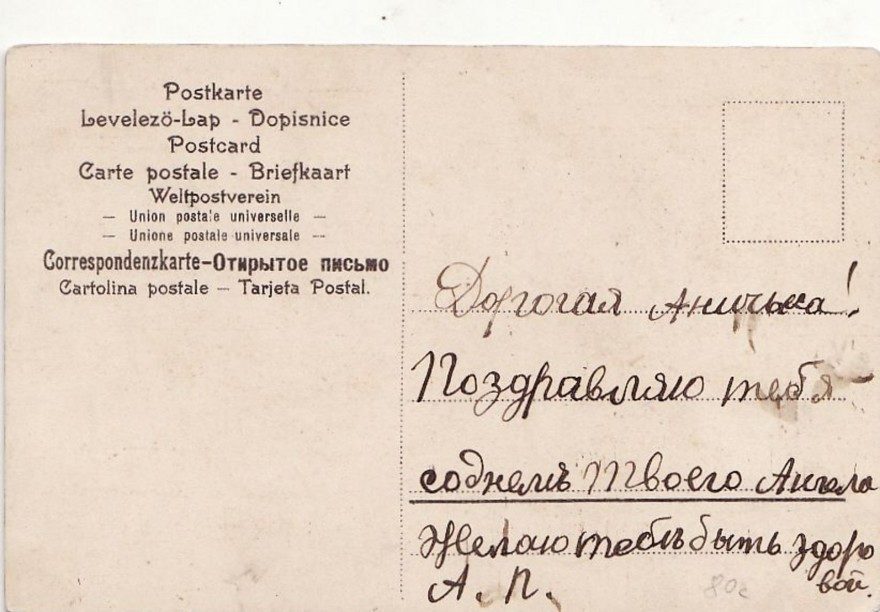 Postkarte
Levelezö-Lap - Dopisnice
Postcard
Carte postale - Briefkaart
Weltpostverein
— Union postale universelle —
— Unione postale universale —
Correspondenzkarte-Открытое письмо
Cartolina postale — Tarjeta Postal.
Дорогая Аничька!
Поздравляю тебя
соднемъ Твоего Ангела
Желаю тебѣ быть здоро
вой.
А. П.
80c